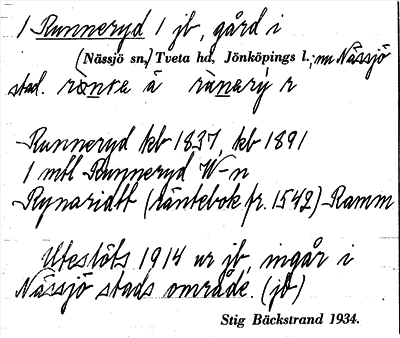 1 Runneryd 1 jb, gård i
(Nässjö sn,) Tveta hd, Jönköpings l.; nu Nässjö
stad.
Runneryd kb 1837, kb 1891
1 mtl Runneryd W-n
Rynaridtt (räntebok fr. 1542) Ramm
Uteslöts 1914 ur jb, ingår i
Nässjö stads område. (jb)
Stig Bäckstrand 1934.